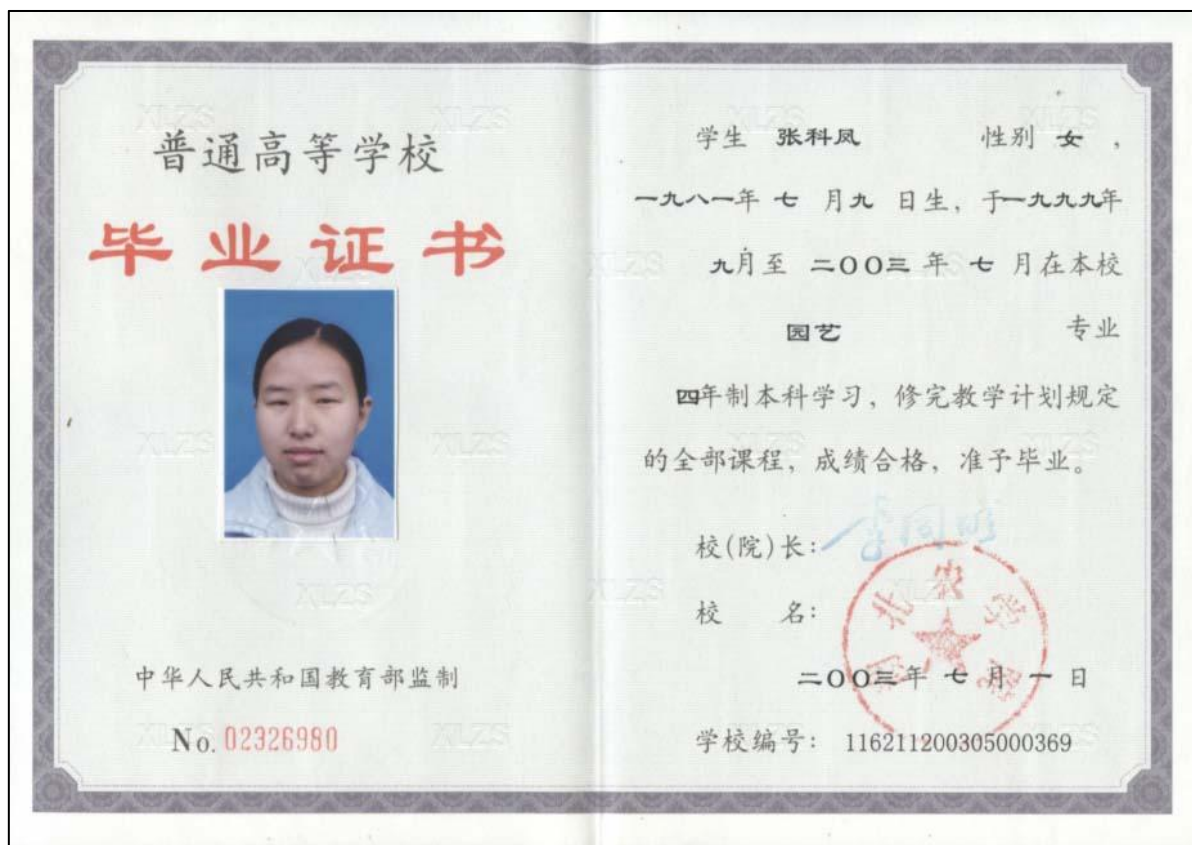 普通高等学校
毕业证书
中华人民共和国教育部监制
No. 02326980
学生 张科凤 性别 女，
一九八一年 七 月九 日生，于一九九九年
九月至 二〇〇三 年 七 月在本校
园艺 专业
四年制本科学习，修完教学计划规定
的全部课程，成绩合格，准予毕业。
校(院)长：
校 名：
北农学院
二〇〇三年 七 月 一 日
学校编号： 116211200305000369
XLZS